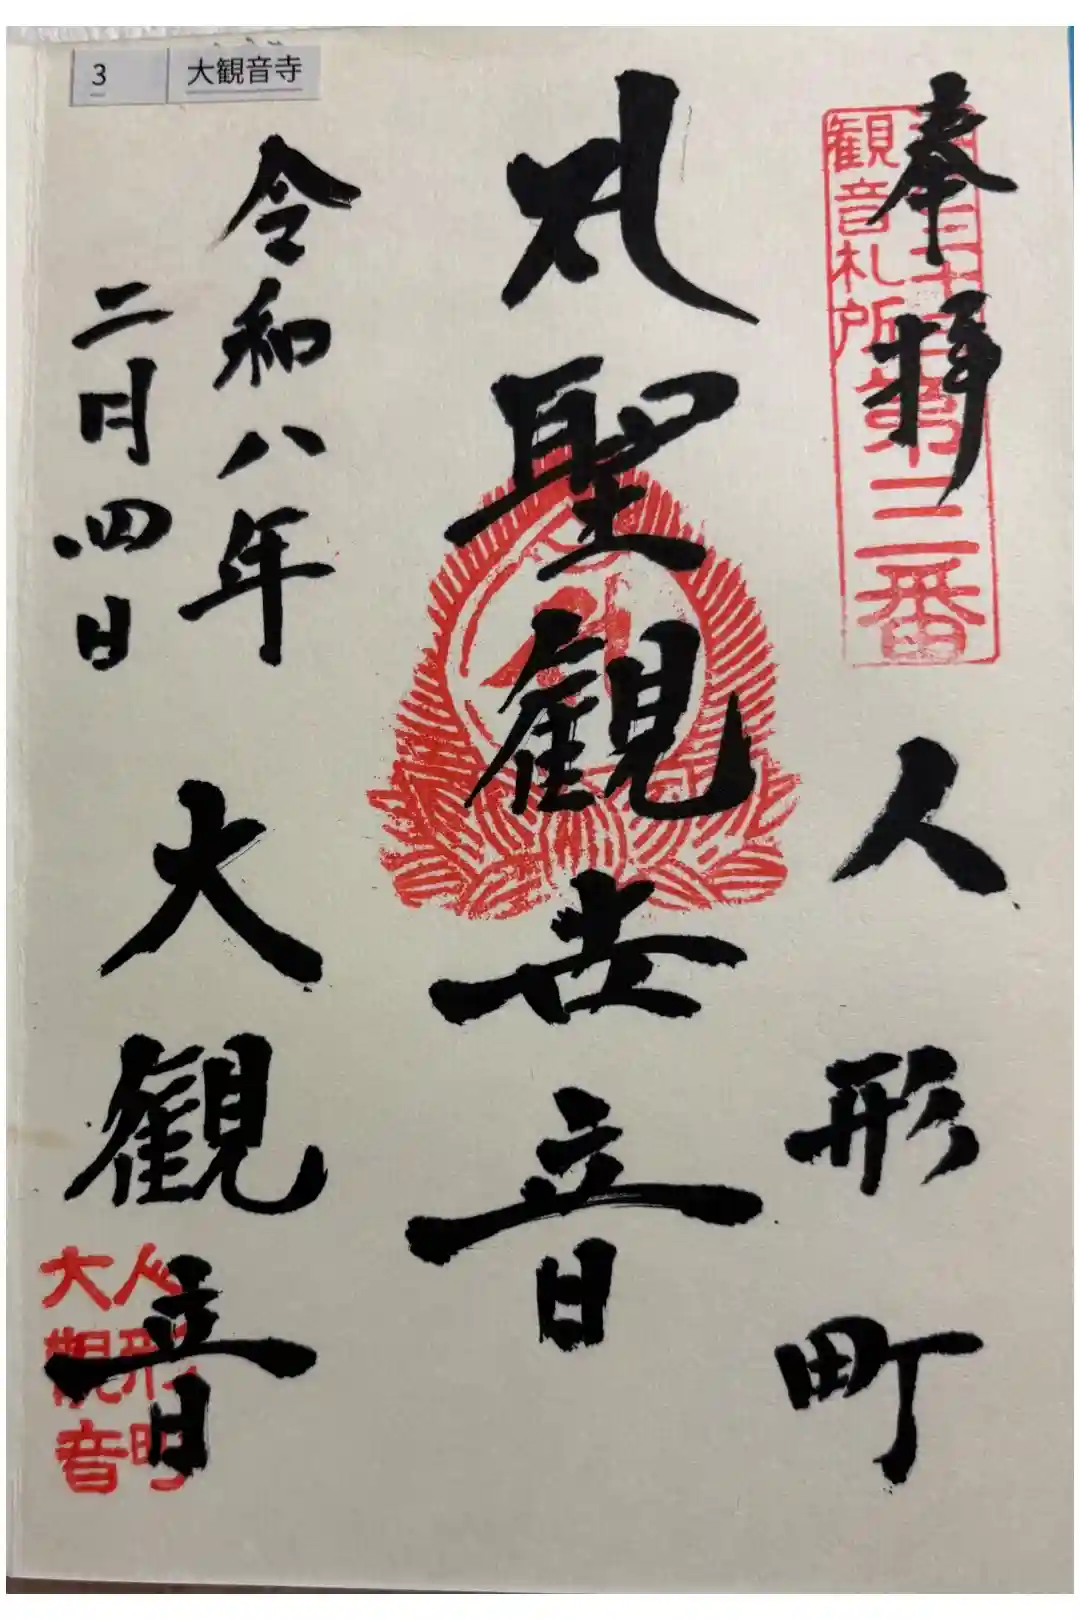 3 大観音寺
奉拝 人形町
観音札所第三番
聖観世音
令和八年
二月四日
大観音
人形町
大観音